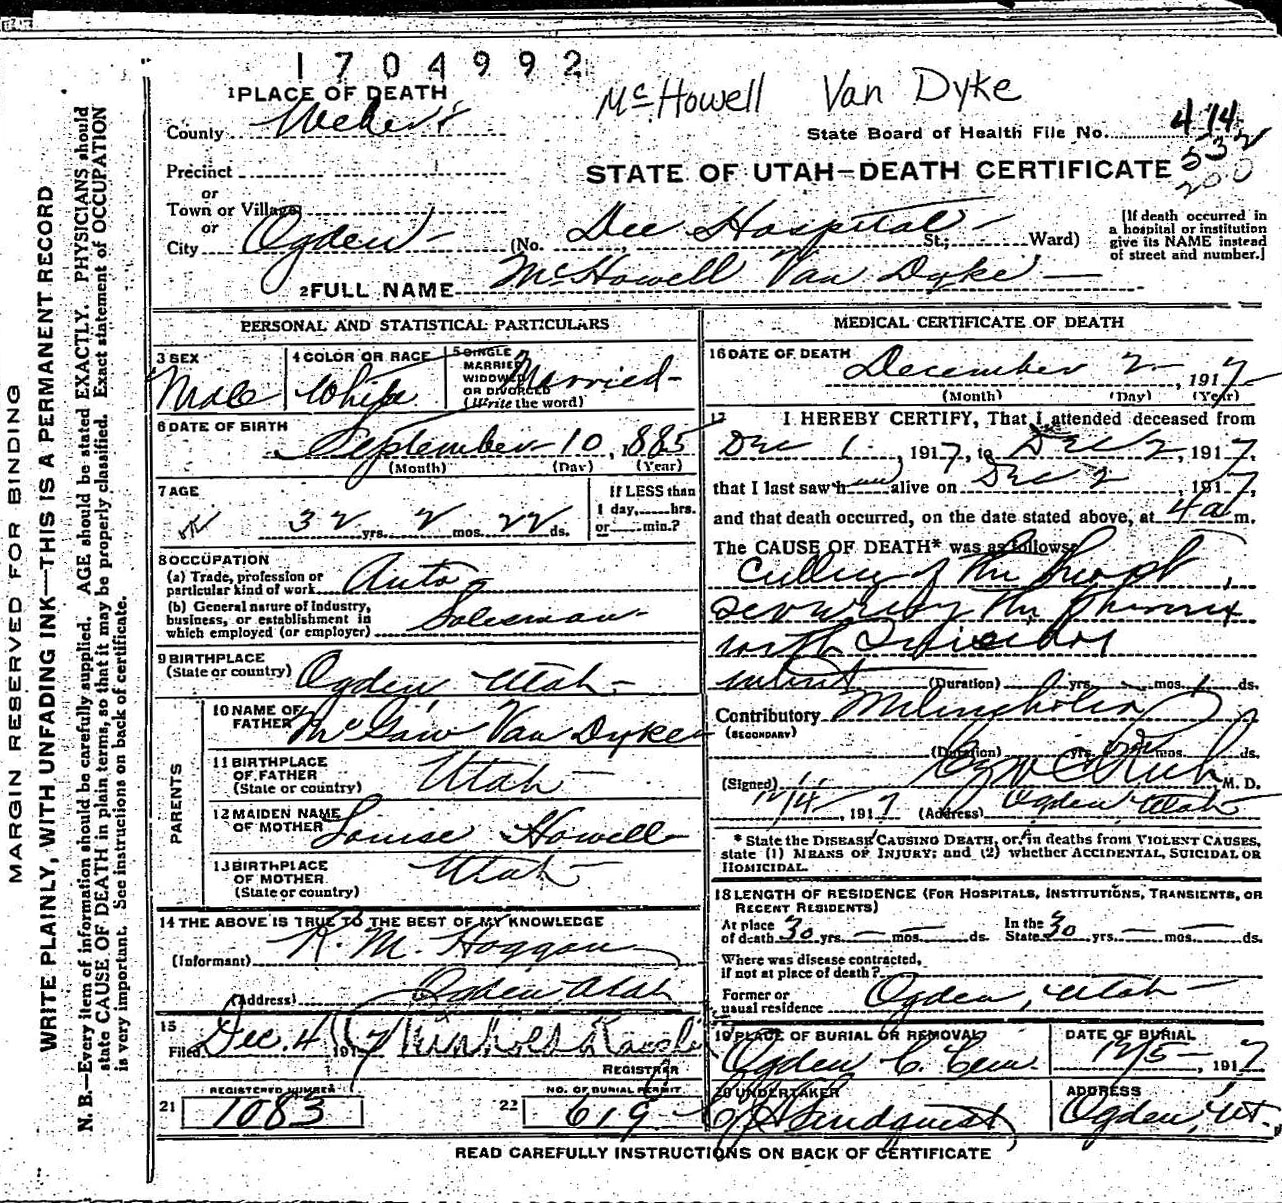 1704992
1 PLACE OF DEATH
McHowell Van Dyke
County Weber
State Board of Health File No. 474
532
200
Precinct
STATE OF UTAH—DEATH CERTIFICATE
or
Town or Village
or
City Ogden (No. Dee Hospital St.; Ward)
[If death occurred in
a hospital or institution
give its NAME instead
of street and number.]
2 FULL NAME McHowell Van Dyke
PERSONAL AND STATISTICAL PARTICULARS
3 SEX
Male
4 COLOR OR RACE
White
5 SINGLE
MARRIED
WIDOWED
OR DIVORCED
(Write the word)
Married
6 DATE OF BIRTH
September 10, 1885
(Month) (Day) (Year)
7 AGE
32 yrs. 2 mos. 22 ds.
If LESS than
1 day, hrs.
or min.?
8 OCCUPATION
(a) Trade, profession or
particular kind of work Auto
(b) General nature of Industry,
business, or establishment in
which employed (or employer) Salesman
9 BIRTHPLACE
(State or country) Ogden Utah
PARENTS
10 NAME OF
FATHER McGaw Van Dyke
11 BIRTHPLACE
OF FATHER
(State or country) Utah
12 MAIDEN NAME
OF MOTHER Louise Howell
13 BIRTHPLACE
OF MOTHER
(State or country) Utah
14 THE ABOVE IS TRUE TO THE BEST OF MY KNOWLEDGE
(Informant) R. M. Hoggan
(Address) Ogden Utah
15
Filed Dec. 4 1917
REGISTRAR
REGISTERED NUMBER
21 1083
NO. OF BURIAL PERMIT
22 619
MEDICAL CERTIFICATE OF DEATH
16 DATE OF DEATH
December 2, 1917
(Month) (Day) (Year)
17 I HEREBY CERTIFY, That I attended deceased from
Dec 1, 1917, to Dec 2, 1917,
that I last saw h alive on Dec 2, 1917,
and that death occurred, on the date stated above, at 4 a m.
The CAUSE OF DEATH* was as follows:
Cutting of the throat,
the
with Suicidal
intent (Duration) yrs. mos. 1 ds.
Contributory Melancholia
(SECONDARY)
(Duration) yrs. mos. ds.
(Signed) Rich M. D.
12/4, 1917 (Address) Ogden Utah
* State the DISEASE CAUSING DEATH, or, in deaths from VIOLENT CAUSES,
state (1) MEANS OF INJURY; and (2) whether ACCIDENTAL, SUICIDAL OR
HOMICIDAL.
18 LENGTH OF RESIDENCE (FOR HOSPITALS, INSTITUTIONS, TRANSIENTS, OR
RECENT RESIDENTS)
At place
of death 30 yrs. — mos. — ds.
In the
State 30 yrs. — mos. — ds.
Where was disease contracted,
if not at place of death?
Former or
usual residence Ogden, Utah
19 PLACE OF BURIAL OR REMOVAL
Ogden C. Cem.
DATE OF BURIAL
12/5, 1917
20 UNDERTAKER
Lindquist
ADDRESS
Ogden, Ut.
READ CAREFULLY INSTRUCTIONS ON BACK OF CERTIFICATE
MARGIN RESERVED FOR BINDING
WRITE PLAINLY, WITH UNFADING INK—THIS IS A PERMANENT RECORD
N. B.—Every item of information should be carefully supplied. AGE should be stated EXACTLY. PHYSICIANS should
state CAUSE OF DEATH in plain terms, so that it may be properly classified. Exact statement of OCCUPATION
is very important. See instructions on back of certificate.